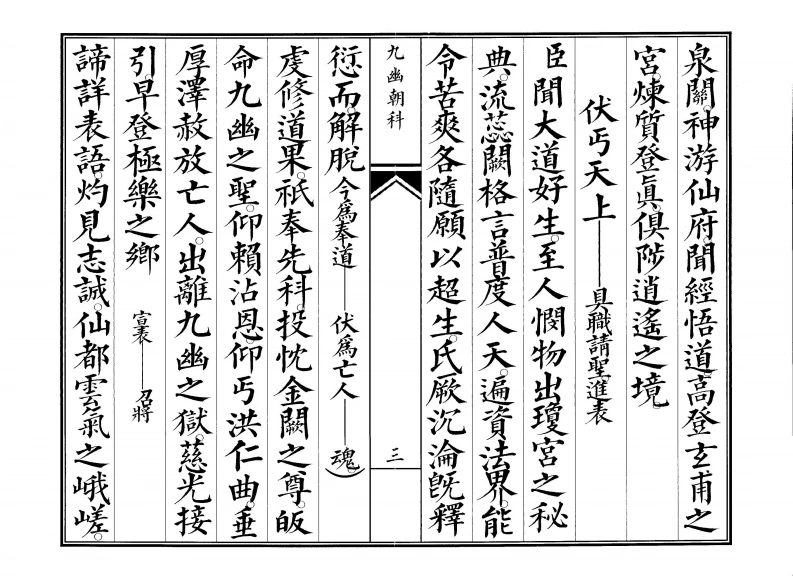 泉關。神游仙府。聞經悟道。高登玄甫之
宮。煉質登眞。俱陟逍遙之境。
伏丐天上——具職請聖進表
臣聞大道好生。至人憫物。出瓊宮之秘
典。流蕊闕格言。普度人天。遍資法界。能
令苦爽各隨願以超生。氏厥沉淪旣釋
九幽朝科
三
愆而解脫 今爲奉道——伏爲亡人——魂
虔修道果。祇奉先科。投忱金闕之尊。皈
命九幽之聖。仰賴沾恩。仰丐洪仁。曲垂
厚澤。赦放亡人。出離九幽之獄。慈光接
引。早登極樂之鄉 宣表——召將
諦詳表語。灼見志誠。仙都雲氣之峨嵯。